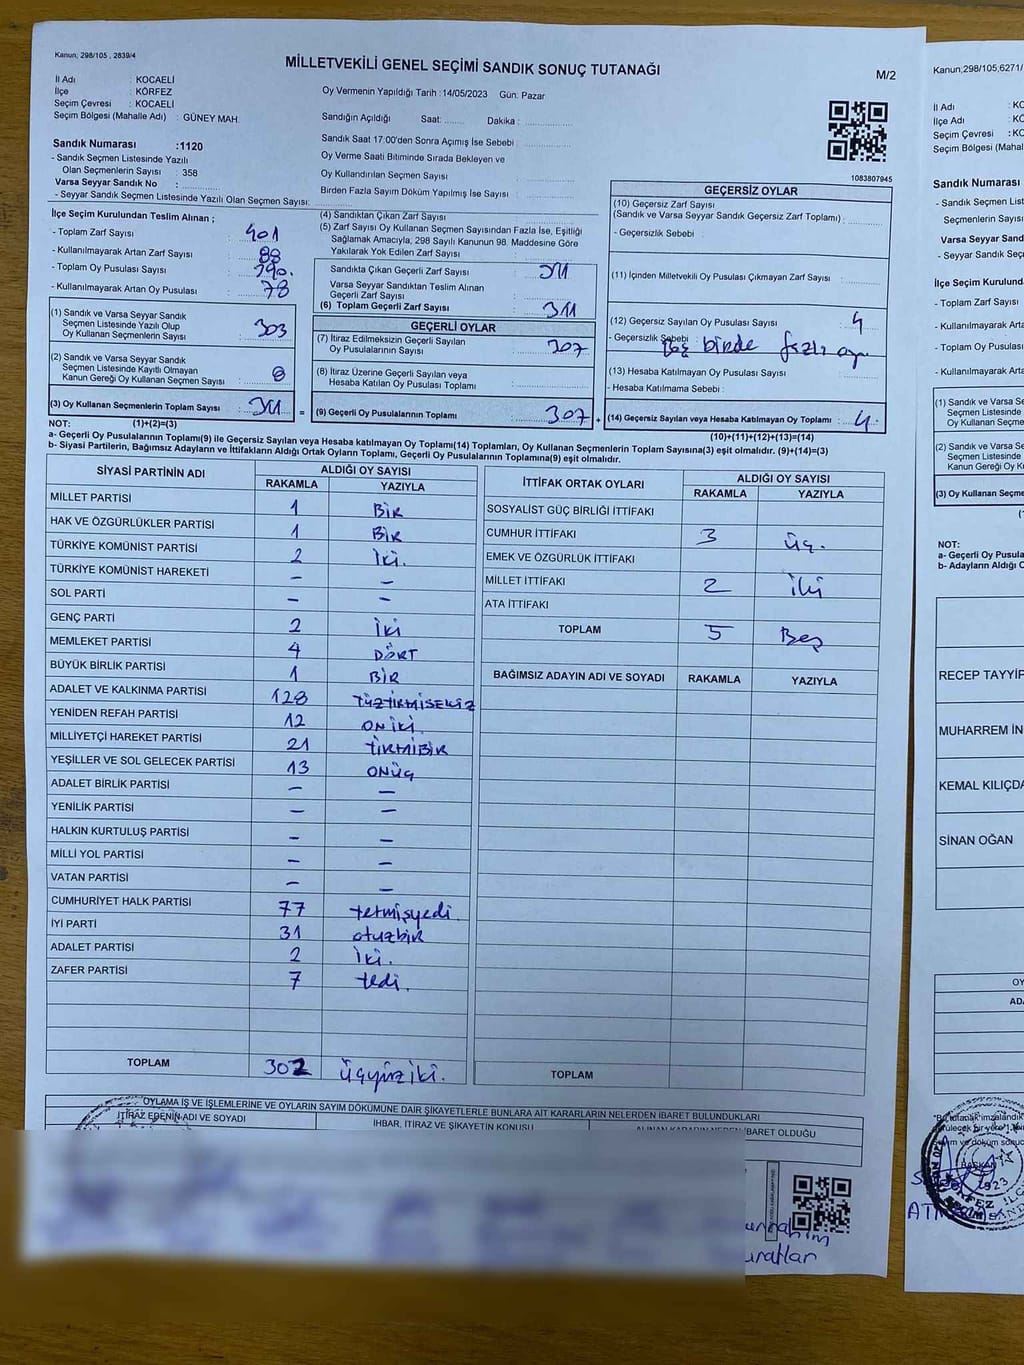 Kanun; 298/105 , 2839/4
MİLLETVEKİLİ GENEL SEÇİMİ SANDIK SONUÇ TUTANAĞI
M/2
İl Adı : KOCAELİ
İlçe : KÖRFEZ
Seçim Çevresi : KOCAELİ
Seçim Bölgesi (Mahalle Adı) : GÜNEY MAH.
Sandık Numarası :1120
- Sandık Seçmen Listesinde Yazılı
Olan Seçmenlerin Sayısı : 358
Varsa Seyyar Sandık No :
- Seyyar Sandık Seçmen Listesinde Yazılı Olan Seçmen Sayısı:
Oy Vermenin Yapıldığı Tarih :14/05/2023 Gün: Pazar
Sandığın Açıldığı Saat: Dakika :
Sandık Saat 17:00'den Sonra Açımış İse Sebebi :
Oy Verme Saati Bitiminde Sırada Bekleyen ve
Oy Kullandırılan Seçmen Sayısı :
Birden Fazla Sayım Döküm Yapılmış İse Sayısı :
1083807945
İlçe Seçim Kurulundan Teslim Alınan ;
- Toplam Zarf Sayısı : 401
- Kullanılmayarak Artan Zarf Sayısı : 88
- Toplam Oy Pusulası Sayısı : 390.
- Kullanılmayarak Artan Oy Pusulası : 78
(1) Sandık ve Varsa Seyyar Sandık
Seçmen Listesinde Yazılı Olup
Oy Kullanan Seçmenlerin Sayısı : 303
(2) Sandık ve Varsa Seyyar Sandık
Seçmen Listesinde Kayıtlı Olmayan
Kanun Gereği Oy Kullanan Seçmen Sayısı : 8
(3) Oy Kullanan Seçmenlerin Toplam Sayısı : 311 =
(4) Sandıktan Çıkan Zarf Sayısı :
(5) Zarf Sayısı Oy Kullanan Seçmen Sayısından Fazla İse, Eşitliği
Sağlamak Amacıyla, 298 Sayılı Kanunun 98. Maddesine Göre
Yakılarak Yok Edilen Zarf Sayısı :
Sandıkta Çıkan Geçerli Zarf Sayısı : 311
Varsa Seyyar Sandıktan Teslim Alınan
Geçerli Zarf Sayısı :
(6) Toplam Geçerli Zarf Sayısı : 311
GEÇERLİ OYLAR
(7) İtiraz Edilmeksizin Geçerli Sayılan
Oy Pusulalarının Sayısı : 307
(8) İtiraz Üzerine Geçerli Sayılan veya
Hesaba Katılan Oy Pusulası Toplamı :
(9) Geçerli Oy Pusulalarının Toplamı : 307 +
GEÇERSİZ OYLAR
(10) Geçersiz Zarf Sayısı
(Sandık ve Varsa Seyyar Sandık Geçersiz Zarf Toplamı) :
- Geçersizlik Sebebi :
(11) İçinden Milletvekili Oy Pusulası Çıkmayan Zarf Sayısı :
(12) Geçersiz Sayılan Oy Pusulası Sayısı : 4
- Geçersizlik Sebebi : birde fazla oy.
(13) Hesaba Katılmayan Oy Pusulası Sayısı :
- Hesaba Katılmama Sebebi :
(14) Geçersiz Sayılan veya Hesaba Katılmayan Oy Toplamı : 4.
NOT: (1)+(2)=(3)
(10)+(11)+(12)+(13)=(14)
a- Geçerli Oy Pusulalarının Toplamı(9) ile Geçersiz Sayılan veya Hesaba katılmayan Oy Toplam(14) Toplamları, Oy Kullanan Seçmenlerin Toplam Sayısına(3) eşit olmalıdır. (9)+(14)=(3)
b- Siyasi Partilerin, Bağımsız Adayların ve İttifakların Aldığı Ortak Oyların Toplamı, Geçerli Oy Pusulalarının Toplamına(9) eşit olmalıdır.
SİYASİ PARTİNİN ADI ALDIĞI OY SAYISI
RAKAMLA YAZIYLA
MİLLET PARTİSİ 1 BİR
HAK VE ÖZGÜRLÜKLER PARTİSİ 1 BİR
TÜRKİYE KOMÜNİST PARTİSİ 2 İki.
TÜRKİYE KOMÜNİST HAREKETİ – –
SOL PARTİ – –
GENÇ PARTİ 2 İki
MEMLEKET PARTİSİ 4 DÖRT
BÜYÜK BİRLİK PARTİSİ 1 BİR
ADALET VE KALKINMA PARTİSİ 128 YÜZYİRMİSEKİZ
YENİDEN REFAH PARTİSİ 12 ONİKİ.
MİLLİYETÇİ HAREKET PARTİSİ 21 YİRMİBİR
YEŞİLLER VE SOL GELECEK PARTİSİ 13 ONÜÇ
ADALET BİRLİK PARTİSİ – –
YENİLİK PARTİSİ – –
HALKIN KURTULUŞ PARTİSİ – –
MİLLİ YOL PARTİSİ – –
VATAN PARTİSİ – –
CUMHURİYET HALK PARTİSİ 77 yetmişyedi
İYİ PARTİ 31 otuzbir
ADALET PARTİSİ 2 İki.
ZAFER PARTİSİ 7 Yedi.
TOPLAM 302 üçyüziki.
İTTİFAK ORTAK OYLARI ALDIĞI OY SAYISI
RAKAMLA YAZIYLA
SOSYALİST GÜÇ BİRLİĞİ İTTİFAKI
CUMHUR İTTİFAKI 3 üç.
EMEK VE ÖZGÜRLÜK İTTİFAKI
MİLLET İTTİFAKI 2 iki
ATA İTTİFAKI
TOPLAM 5 Beş
BAĞIMSIZ ADAYIN ADI VE SOYADI RAKAMLA YAZIYLA
TOPLAM
OYLAMA İŞ VE İŞLEMLERİNE VE OYLARIN SAYIM DÖKÜMÜNE DAİR ŞİKAYETLERLE BUNLARA AİT KARARLARIN NELERDEN İBARET BULUNDUKLARI
İTİRAZ EDENİN ADI VE SOYADI İHBAR, İTİRAZ VE ŞİKAYETİN KONUSU ALINAN KARARIN NEDEN İBARET OLDUĞU
Kanun;298/105;6271/
İl Adı : KO
İlçe Adı : KÖ
Seçim Çevresi : KO
Seçim Bölgesi (Mahal
Sandık Numarası
- Sandık Seçmen List
Seçmenlerin Sayısı
Varsa Seyyar Sandık
- Seyyar Sandık Seç
İlçe Seçim Kurulund
- Toplam Zarf Sayısı
- Kullanılmayarak Arta
- Toplam Oy Pusulası
- Kullanılmayarak Arta
(1) Sandık ve Varsa S
Seçmen Listesind
Oy Kullanan Seçm
(2) Sandık ve Varsa S
Seçmen Listesind
Kanun Gereği Oy
(3) Oy Kullanan Seçme
NOT:
a- Geçerli Oy Pusula
b- Adayların Aldığı O
RECEP TAYYİP
MUHARREM İN
KEMAL KILIÇDA
SİNAN OĞAN